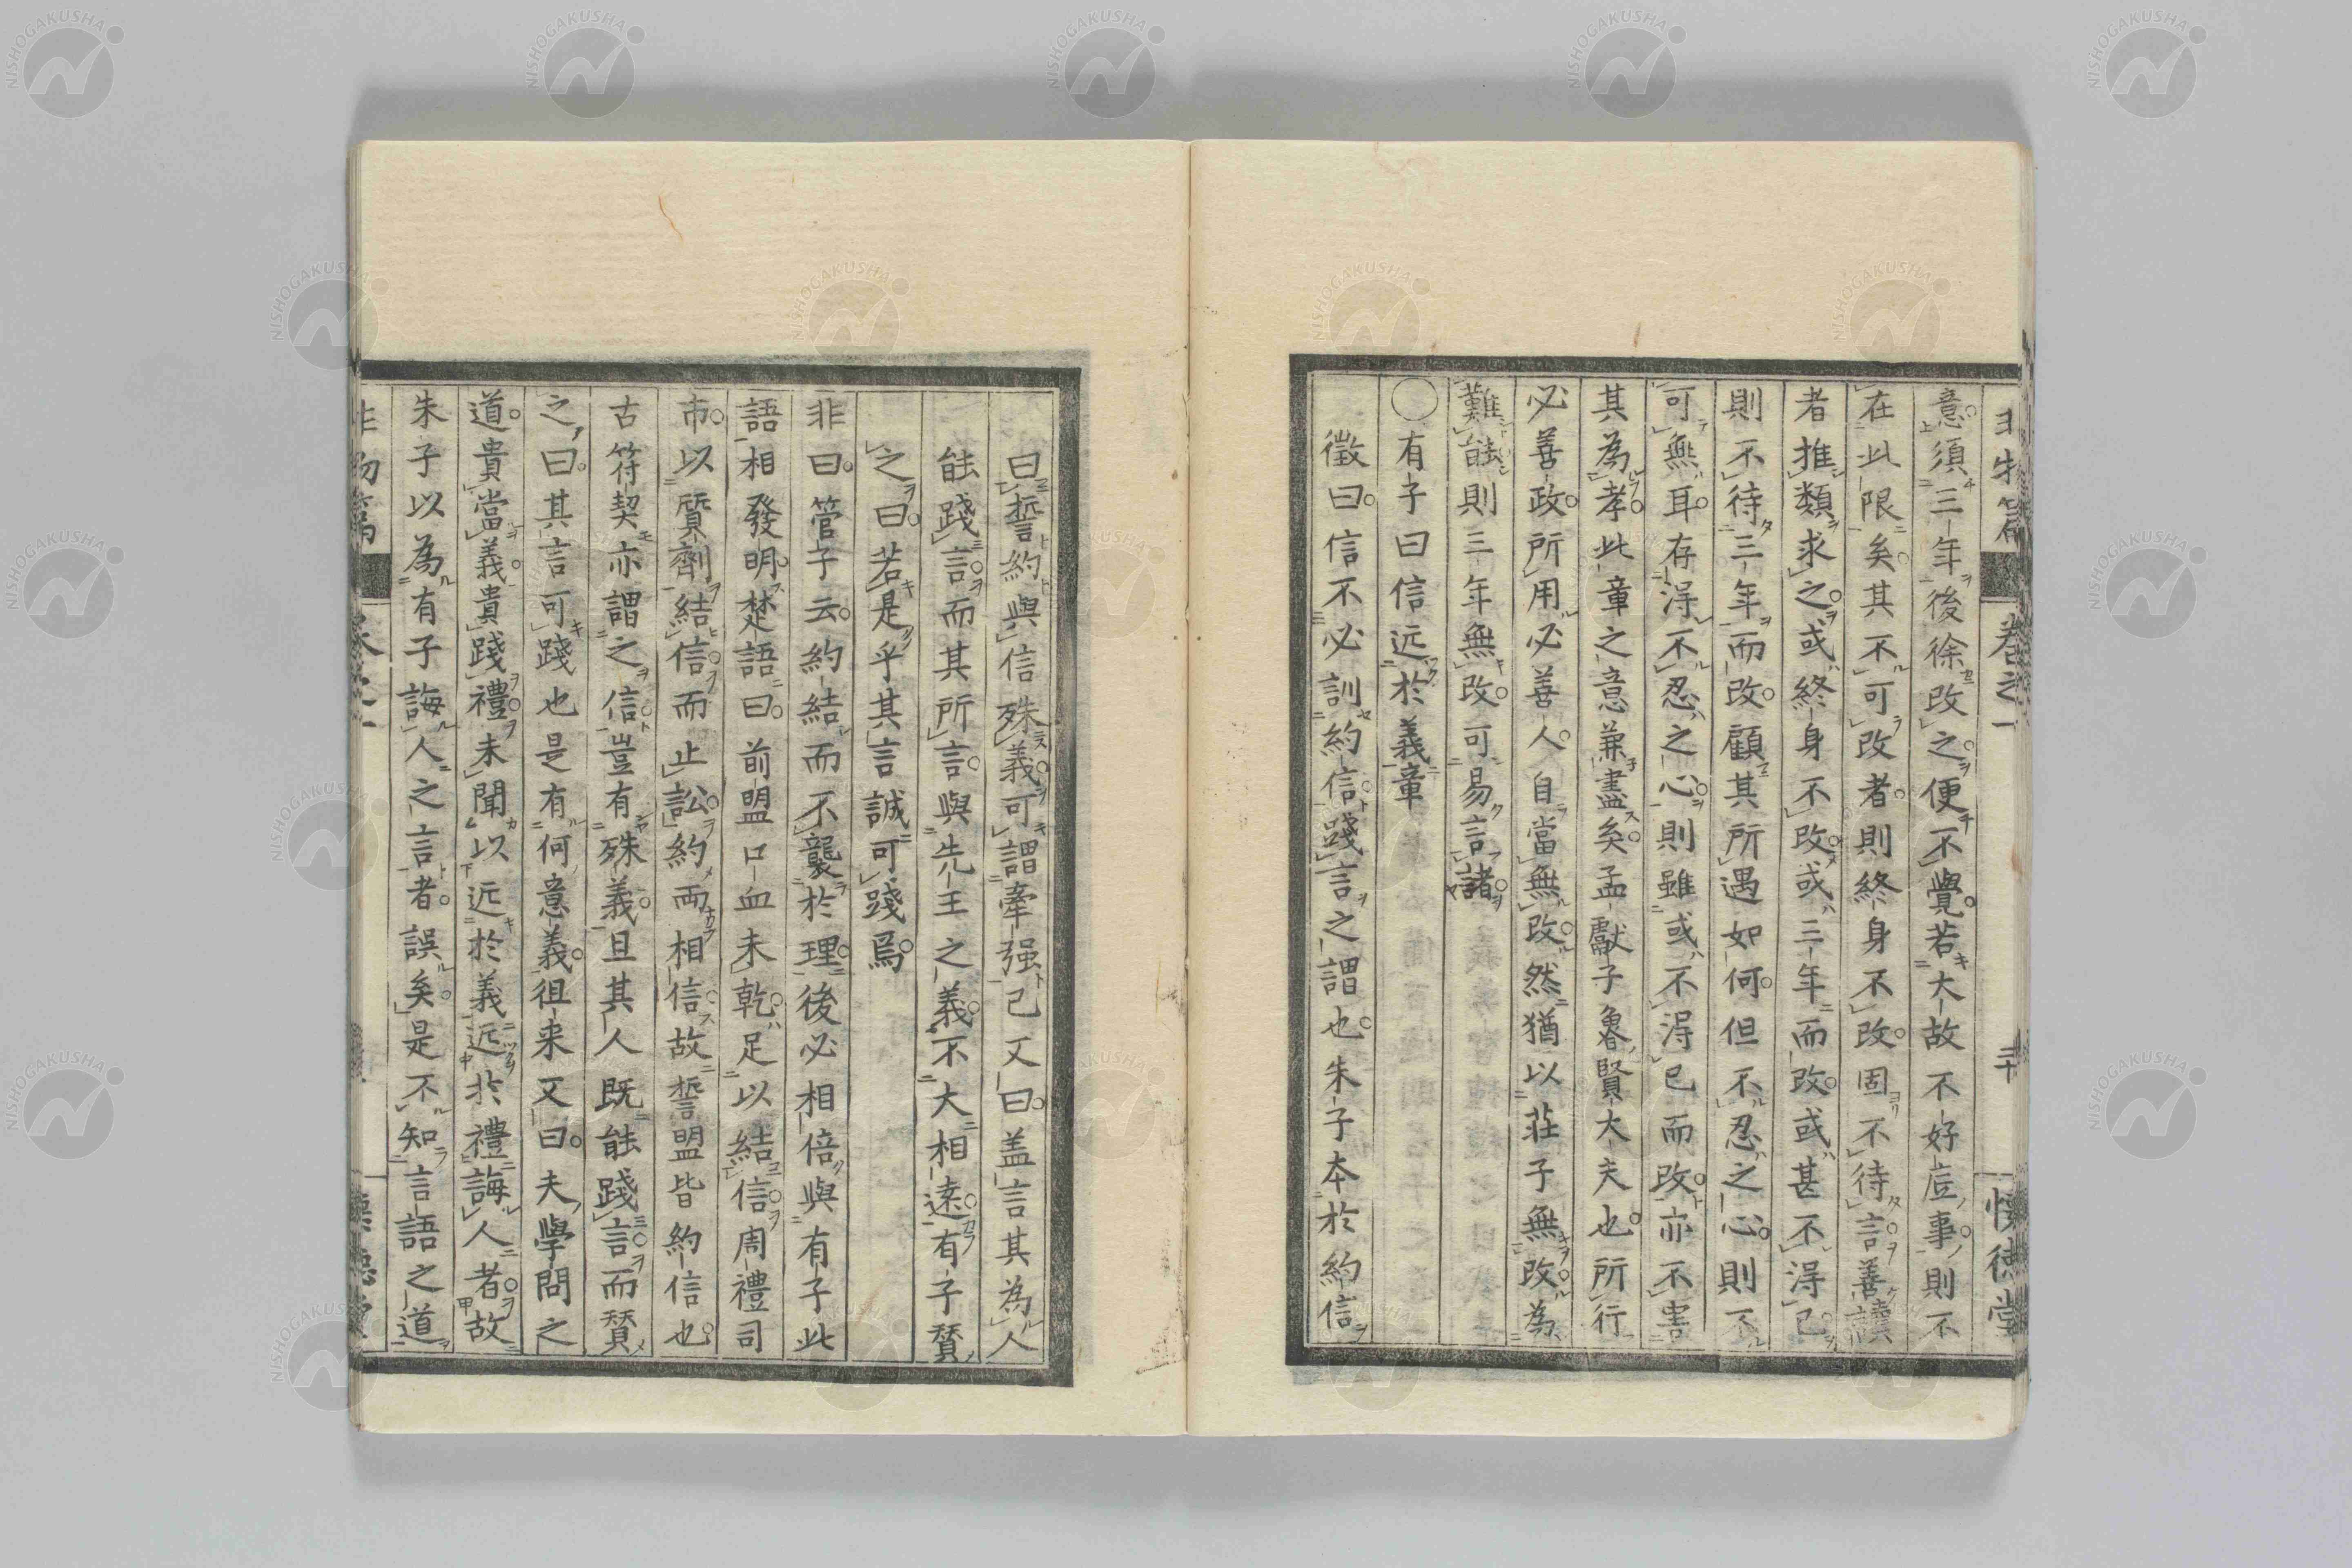 意須三年後徐改之便不覺若大故不好底事則不
在此限矣其不可改者則終身不改固不待言善讀
者推類求之或終身不改或三年而改或甚不得已
則不待三年而改顧其所遇如何但不忍之心則不
可無耳存得不忍之心則雖或不得已而改亦不害
其為孝此章之意兼盡矣孟獻子魯賢大夫也所行
必善政所用必善人自當無改然猶以莊子無改為
難能則三年無改可易言諸
○有子曰信近於義章
徵曰信不必訓約信踐言之謂也朱子本於約信
曰誓約與信殊義可謂牽强已又曰盖言其為人
能踐言而其所言與先王之義不大相遠有子賛
之曰若是乎其言誠可踐焉
非曰管子云約結而不襲於理後必相倍與有子此
語相發明楚語曰前盟口血未乾足以結信周禮司
市以質劑結信而止訟約両相信故誓盟皆約信也
古符契亦謂之信豈有殊義且其人既能踐言而賛
之曰其言可踐也是有何意義徂来又曰夫學問之
道貴當義貴踐禮未聞以近於義近於禮誨人者故
朱子以為有子誨人之言者誤矣是不知言語之道
非物篇
卷之一
三十
懐徳堂